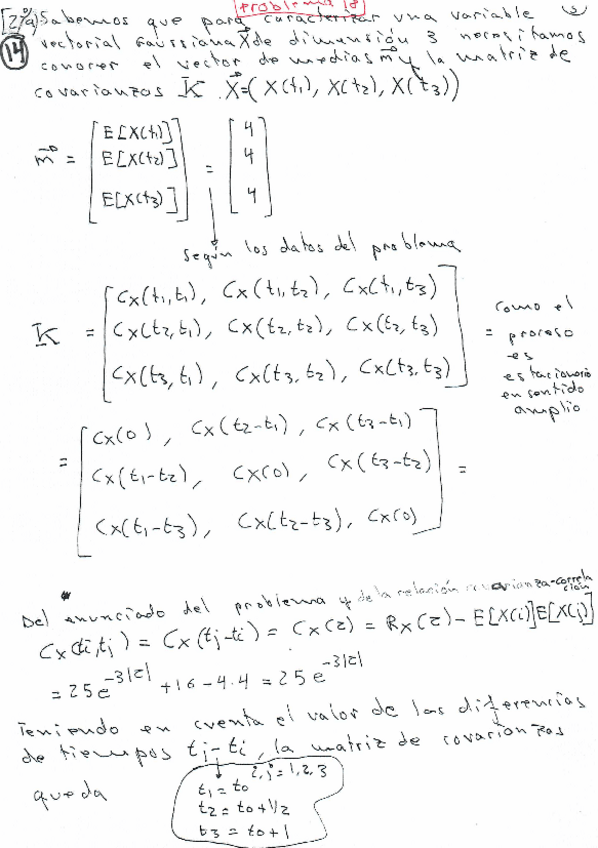 Problema 18
[2,7a) Sabemos que para caracterizar una variable
14
vectorial Gaussiana X⃗ de dimensión 3 necesitamos
conocer el vector de medias m⃗ y la matriz de
covarianzas K. X⃗=(X(t1), X(t2), X(t3))
m⃗ = [E[X(t1)] E[X(t2)] E[X(t3)]] = [4 4 4]
según los datos del problema
K = [Cx(t1,t1), Cx(t1,t2), Cx(t1,t3)
Cx(t2,t1), Cx(t2,t2), Cx(t2,t3)
Cx(t3,t1), Cx(t3,t2), Cx(t3,t3)] =
como el
proceso
es
estacionario
en sentido
amplio
= [Cx(0), Cx(t2-t1), Cx(t3-t1)
Cx(t1-t2), Cx(0), Cx(t3-t2)
Cx(t1-t3), Cx(t2-t3), Cx(0)] =
Del enunciado del problema y de la relación covarianza-correlación
Cx(ti,tj) = Cx(tj-ti) = Cx(z) = Rx(z) - E[X(i)]E[X(j)]
= 25e^-3|z| + 16 - 4.4 = 25e^-3|z|
Teniendo en cuenta el valor de las diferencias
de tiempos tj-ti, la matriz de covarianzas
i,j = 1,2,3
queda
t1 = t0
t2 = t0 + 1/2
t3 = t0 + 1